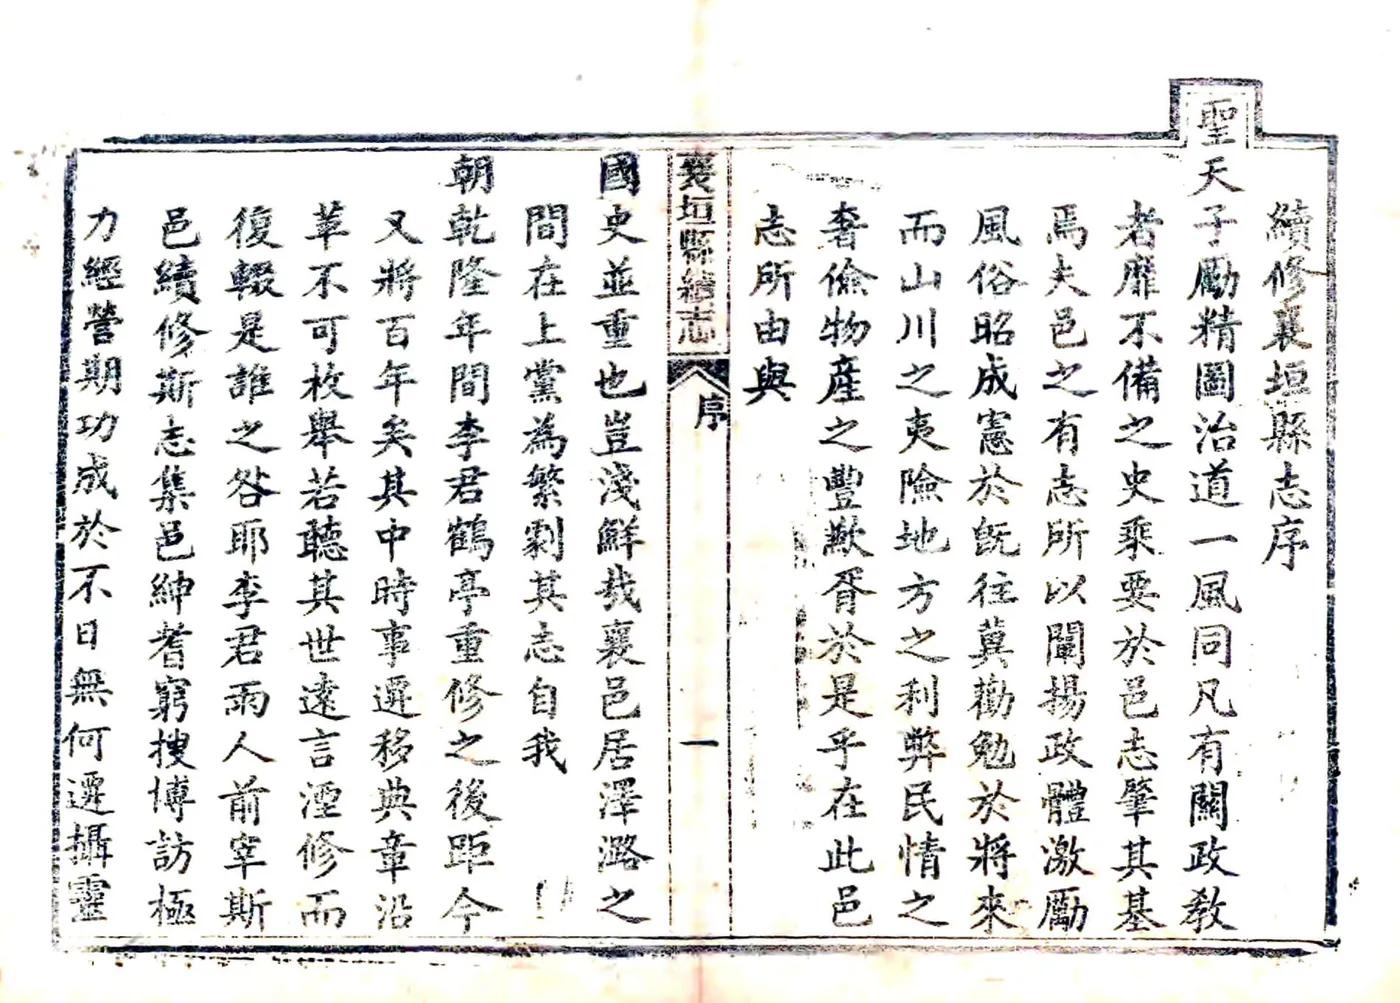 續修襄垣縣志序
聖天子勵精圖治道一風同凡有關政敎
者靡不備之史乘要於邑志肇其基
焉夫邑之有志所以闡揚政體激勵
風俗昭成憲於旣往冀勸勉於將來
而山川之夷險地方之利弊民情之
奢儉物產之豐歉胥於是乎在此邑
志所由與
襄垣縣續志
序
一
國史並重也豈淺鮮哉襄邑居澤潞之
間在上黨為繁劇其志自我
朝乾隆年間李君鶴亭重修之後距今
又將百年矣其中時事遷移典章沿
革不可枚舉若聽其世遠言湮修而
復輟是誰之咎耶李君雨人前宰斯
邑續修斯志集邑紳耆窮搜博訪極
力經營期功成於不日無何遷攝靈